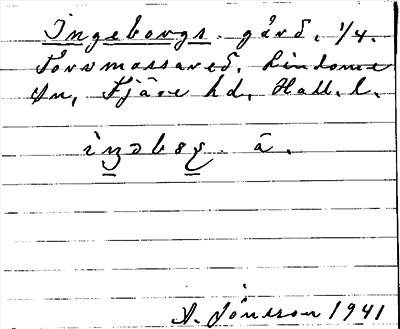 Ingeborgs gård. 1/4.
Torvmossared. Lindome
sn, Fjäre hd, Hall. l.
a.
A. Jonsson 1941